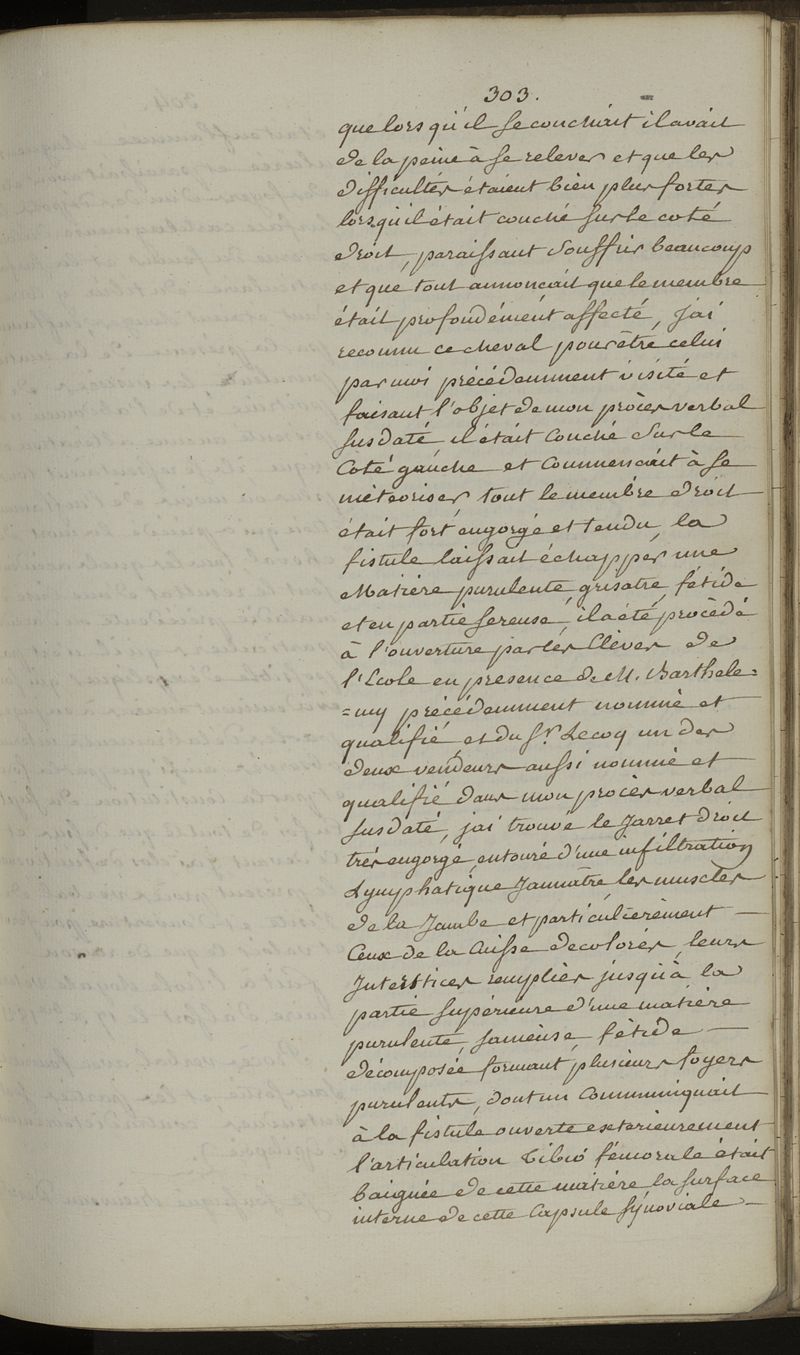 303.
que lorsqu'il se couchait il avait
de la peine à se relever et que les
difficultés étaient bien plus fortes
lorsqu'il était couché sur le coté
droit, paraissant souffrir beaucoup
et que tout annonçait que le membre
était profondément affecté, j'ai
reconnu ce cheval pour être celui
par moi précédemment visité et
faisant l'objet de mon procès verbal
susdaté il était couché sur le
coté gauche et commencait à se
météoriser tout le membre droit —
était fort engorgé et tendu, la
fistule laissait échapper une
matière purulente grisatre, fétide
et en partie sereuse, il a été procédé
à l'ouverture par les Elèves de
l'Ecole en presence de M. Barthele=
=my précédemment nommé et
qualifié et du Sr. Lecoq un des
deux vendeurs aussi nommé et
qualifié dans mon procès verbal
susdaté, j'ai trouvé le Jarret droit
très engorgé, entouré d'une infiltration
Lymphatique Jaunâtre les muscles
de la Jambe et particulièrement —
Ceux de la Cuisse decolorés, leurs
Interstices remplies jusqu'à la
partie supérieure d'une matière
purulente, sanieuse, fétide —
décomposée formant plusieurs foyers
purulents, dont un communiquait
à la fistule ouverte exterieurement
l'articulation Tibio fémorale était
baignée de cette matière la surface
interne de cette Capsule synoviale —